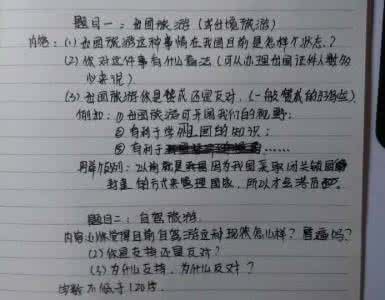 题目一：出国旅游（或出境旅游）
内容：(1) 出国旅游这种事情在我国目前是怎样个状态？
(2) 你对这件事有什么看法（可从办理出国证件人数多
少来说）
(3) 出国旅游你是赞成还是反对，（一般赞成的
例如：① 出国旅游可开阔我们的视野；
② 有利于学 国的知识；
③ 有利于 ……
因为我国采取闭关锁国
来管理国家，所以才会落后
题目二：自驾旅游
内容：(1) 你觉得目前自驾游这种现状怎么样？普遍吗？
(2) 你是支持还是反对？
(3) 为什么支持，为什么反对？
字数不低于120字.